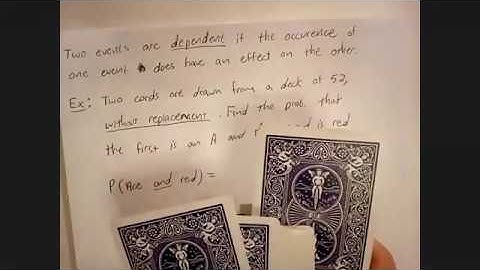 Two events are dependent if the occurence of
one event does have an effect on the other.
Ex: Two cards are drawn from a deck of 52,
without replacement. Find the prob. that
the first is an A and is red
P(Ace and red) =